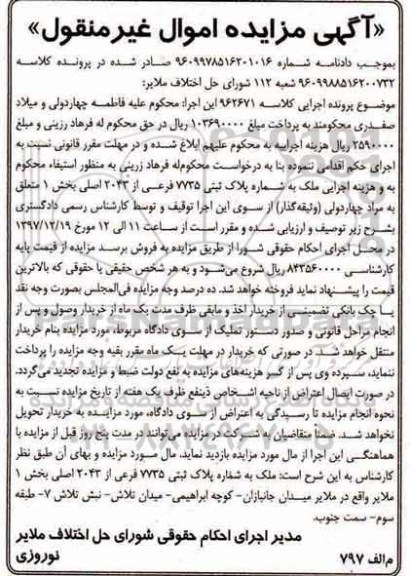 «آگهی مزایده اموال غیرمنقول»
بموجب دادنامه شماره ۹۶۰۹۹۷۸۵۱۶۲۰۱۰۱۶ صادر شده در پرونده کلاسه
۹۶۰۹۹۸۸۵۱۶۲۰۰۷۳۲ شعبه ۱۱۲ شورای حل اختلاف ملایر:
موضوع پرونده اجرایی کلاسه ۹۶۲۶۷۱ این اجرا: محکوم علیه فاطمه چهاردولی و میلاد
صفدری محکومند به پرداخت مبلغ ۱۰۳۶۹۰۰۰۰ ریال در حق محکوم له فرهاد رزینی و مبلغ
۲۵۹۰۰۰۰ ریال هزینه اجراییه به محکوم علیهم ابلاغ شده و در مهلت مقرر قانونی نسبت به
اجرای حکم اقدامی ننموده بنا به درخواست محکوم‌له فرهاد زرینی به منظور استیفاء محکوم
به و هزینه اجرایی ملک به شماره پلاک ثبتی ۷۷۳۵ فرعی از ۲۰۴۳ اصلی بخش ۱ متعلق
به مراد چهاردولی (وثیقه‌گذار) از سوی این اجرا توقیف و توسط کارشناس رسمی دادگستری
بشرح زیر توصیف و ارزیابی شده و مقرر است از ساعت ۱۱ الی ۱۲ مورخ ۱۳۹۷/۱۲/۱۹
در محل اجرای احکام حقوقی شورا از طریق مزایده به فروش برسد مزایده از قیمت پایه
کارشناسی ۸۴۳۵۶۰۰۰۰ ریال شروع می‌شود و به هر شخص حقیقی یا حقوقی که بالاترین
قیمت را پیشنهاد نماید فروخته خواهد شد. ده درصد وجه مزایده فی‌المجلس بصورت وجه نقد
یا چک بانکی تضمینی از خریدار اخذ و مابقی ظرف مدت یک ماه از خریدار وصول و پس از
انجام مراحل قانونی و صدور دستور تملیک از سوی دادگاه مربوط، مورد مزایده بنام خریدار
منتقل خواهد شد. در صورتی که خریدار در مهلت یک ماه مقرر بقیه وجه مزایده را پرداخت
ننماید، سپرده وی پس از کسر هزینه‌های مزایده به نفع دولت ضبط و مزایده تجدید می‌گردد.
در صورت ایصال اعتراض از ناحیه اشخاص ذینفع ظرف یک هفته از تاریخ مزایده نسبت به
نحوه انجام مزایده تا رسیدگی به اعتراض از سوی دادگاه، مورد مزایده به خریدار تحویل
نخواهد شد. ضمنا متقاضیان به شرکت در مزایده می‌توانند در مدت پنج روز قبل از مزایده با
هماهنگی این اجرا از مال مورد مزایده بازدید نماید، مال مورد مزایده و بهای آن طبق نظر
کارشناس به این شرح است: ملک به شماره پلاک ثبتی ۷۷۳۵ فرعی از ۲۰۴۳ اصلی بخش ۱
ملایر واقع در ملایر میدان جانبازان- کوچه ابراهیمی- میدان تلاش- نبش تلاش ۷- طبقه
سوم- سمت جنوب.
مدیر اجرای احکام حقوقی شورای حل اختلاف ملایر
م‌الف ۷۹۷ نوروزی